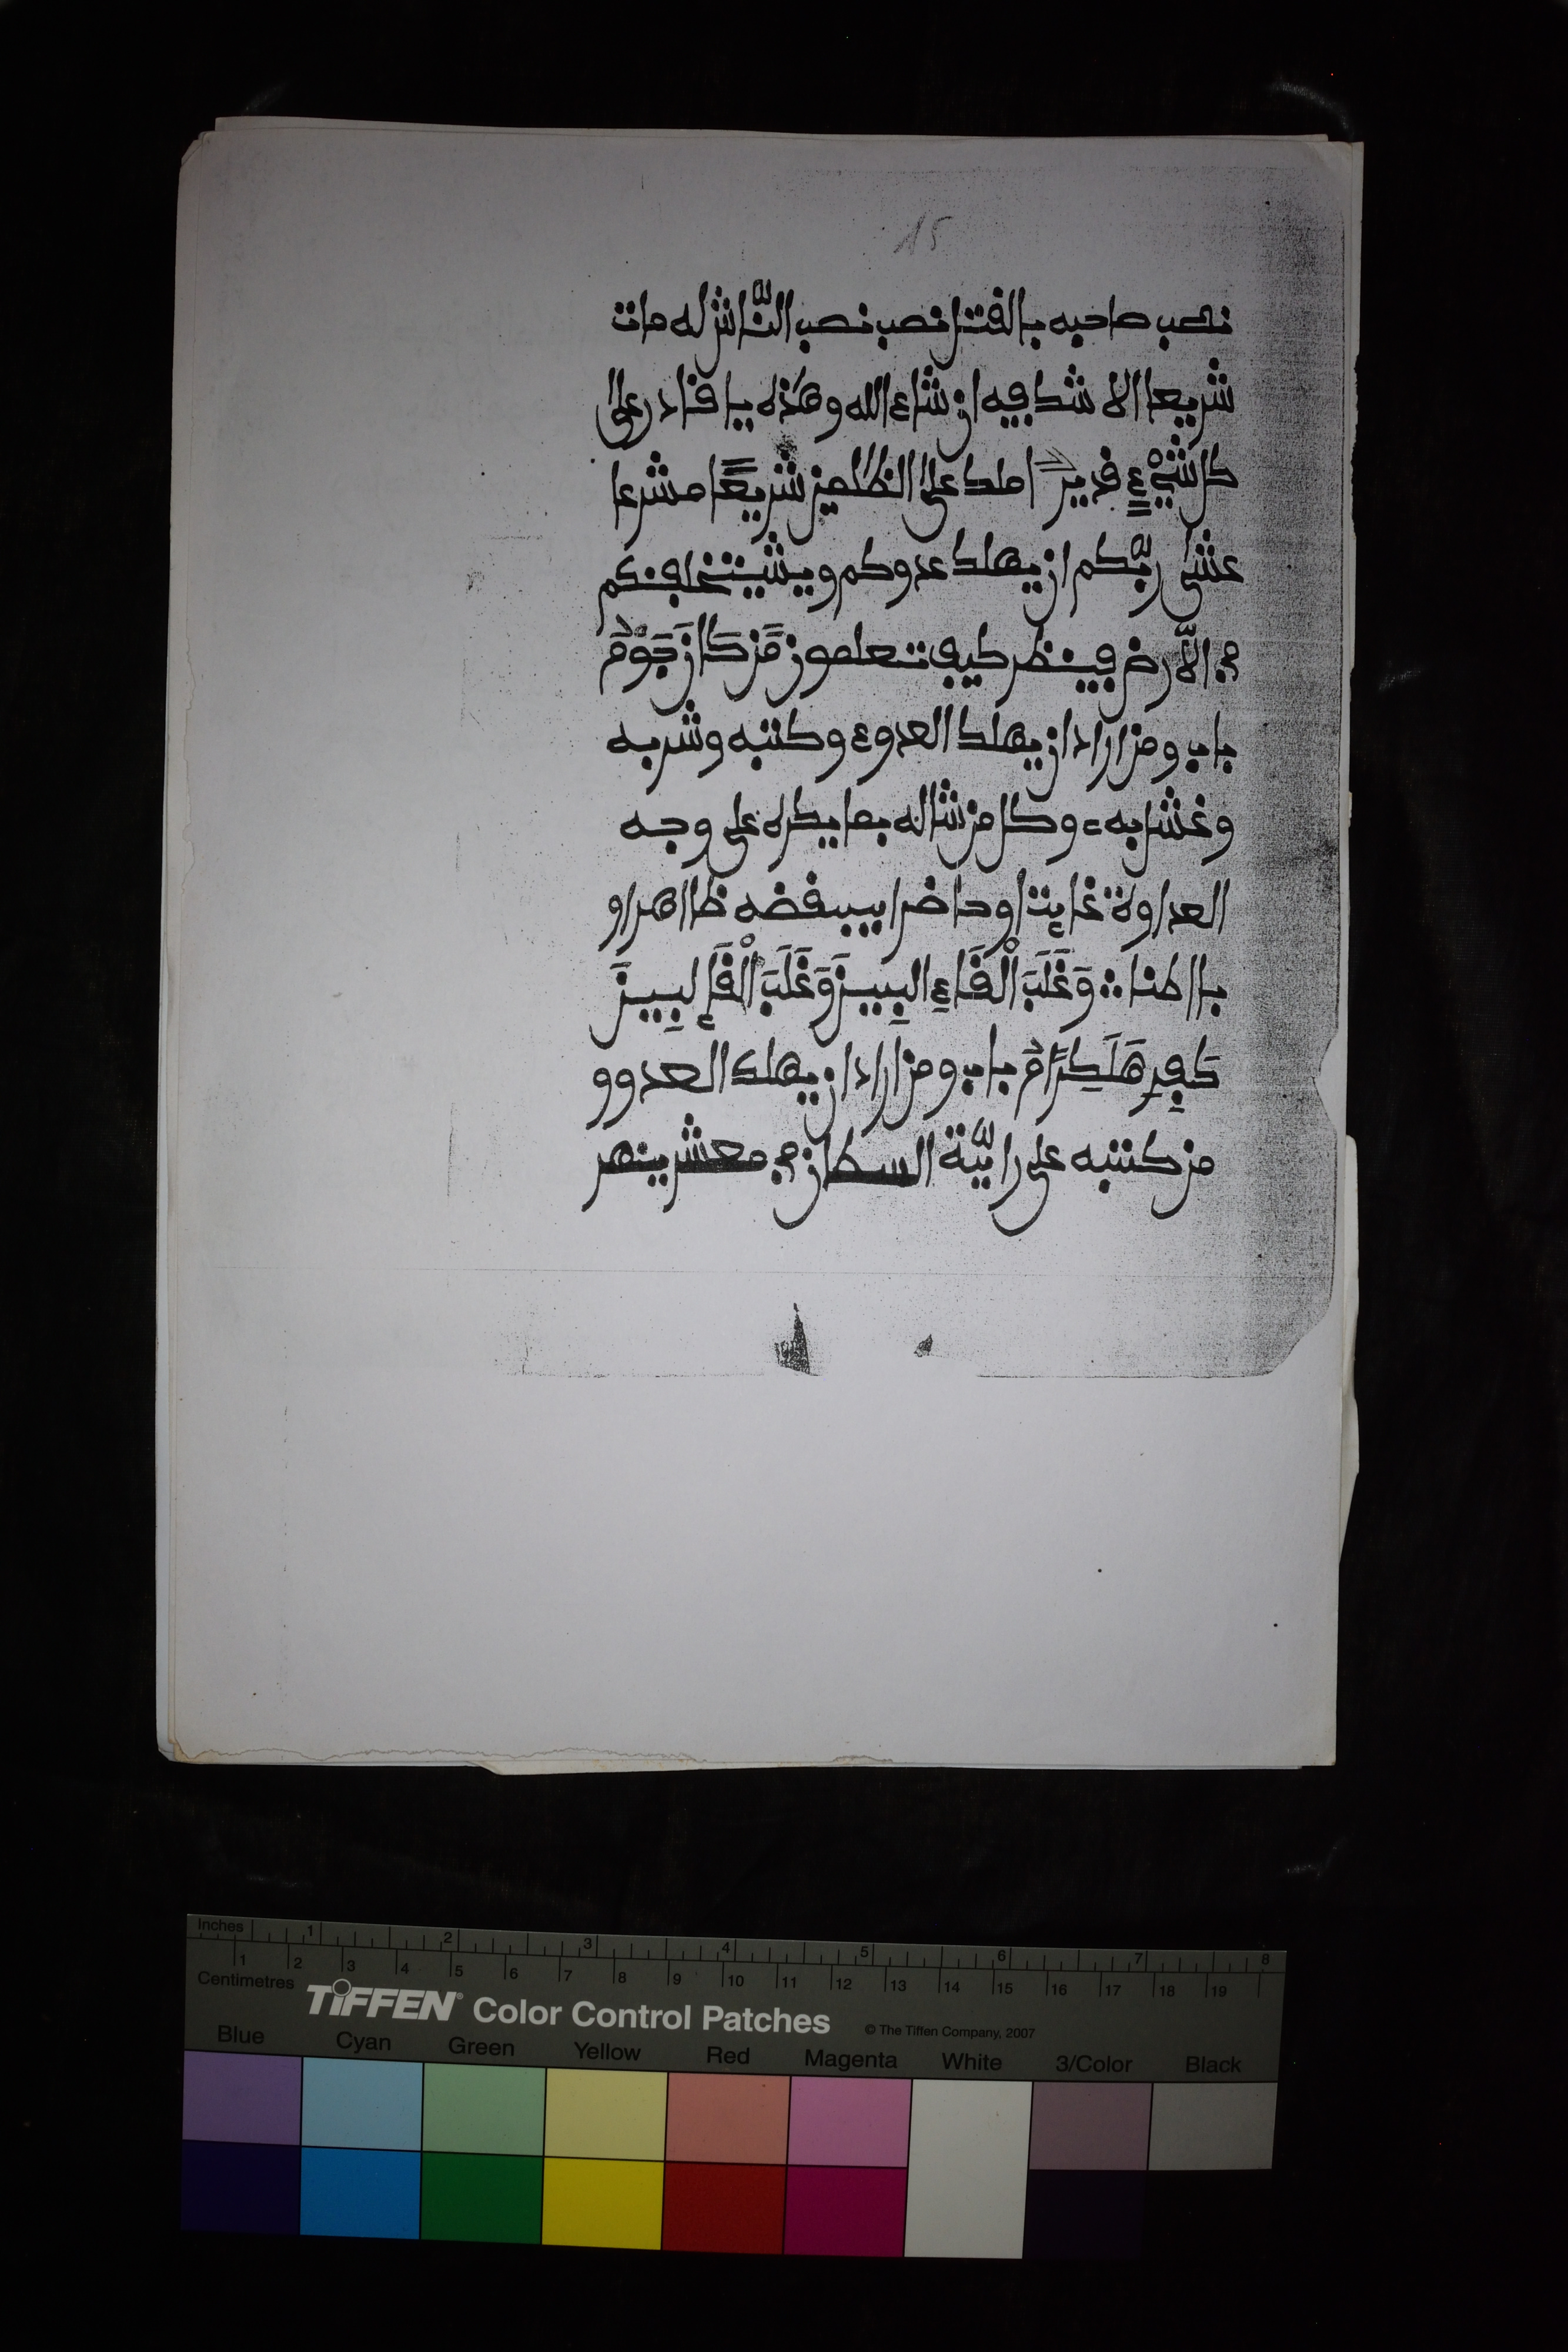 15
نصب صاحبه بالقتل نصب نصب النّاش له مات
شريعا الا شك فيه ان شاء الله وهذه يا قادر على
كل شيْءٍ قدير املك على الظلمين شريعًا مشرعا
عشى ربّكم ان يهلك عدوكم ويشتخلفنكم
في الاّرض فينظر كيف تعلمون مَّن كَانَ
باب ومن اراد ان يهلك العدوء وكتبه وشربه
وغشل به وكل من شاله بما يكره على وجه
العداوة غايت او حاضرا يبغضه ظااهر او
بااطنا وَغَلَبَ الْقَاءِ البِيينَ وَغَلَبَ الْقَاإلبِيينَ
كَفِرِ باب ومن اراد ان يهلك العدوو
من كتبه على رايّة السطان في معشر ينهر
Inches 1 2 3 4 5 6 7 8
Centimetres 1 2 3 4 5 6 7 8 9 10 11 12 13 14 15 16 17 18 19
TIFFEN® Color Control Patches © The Tiffen Company, 2007
Blue Cyan Green Yellow Red Magenta White 3/Color Black